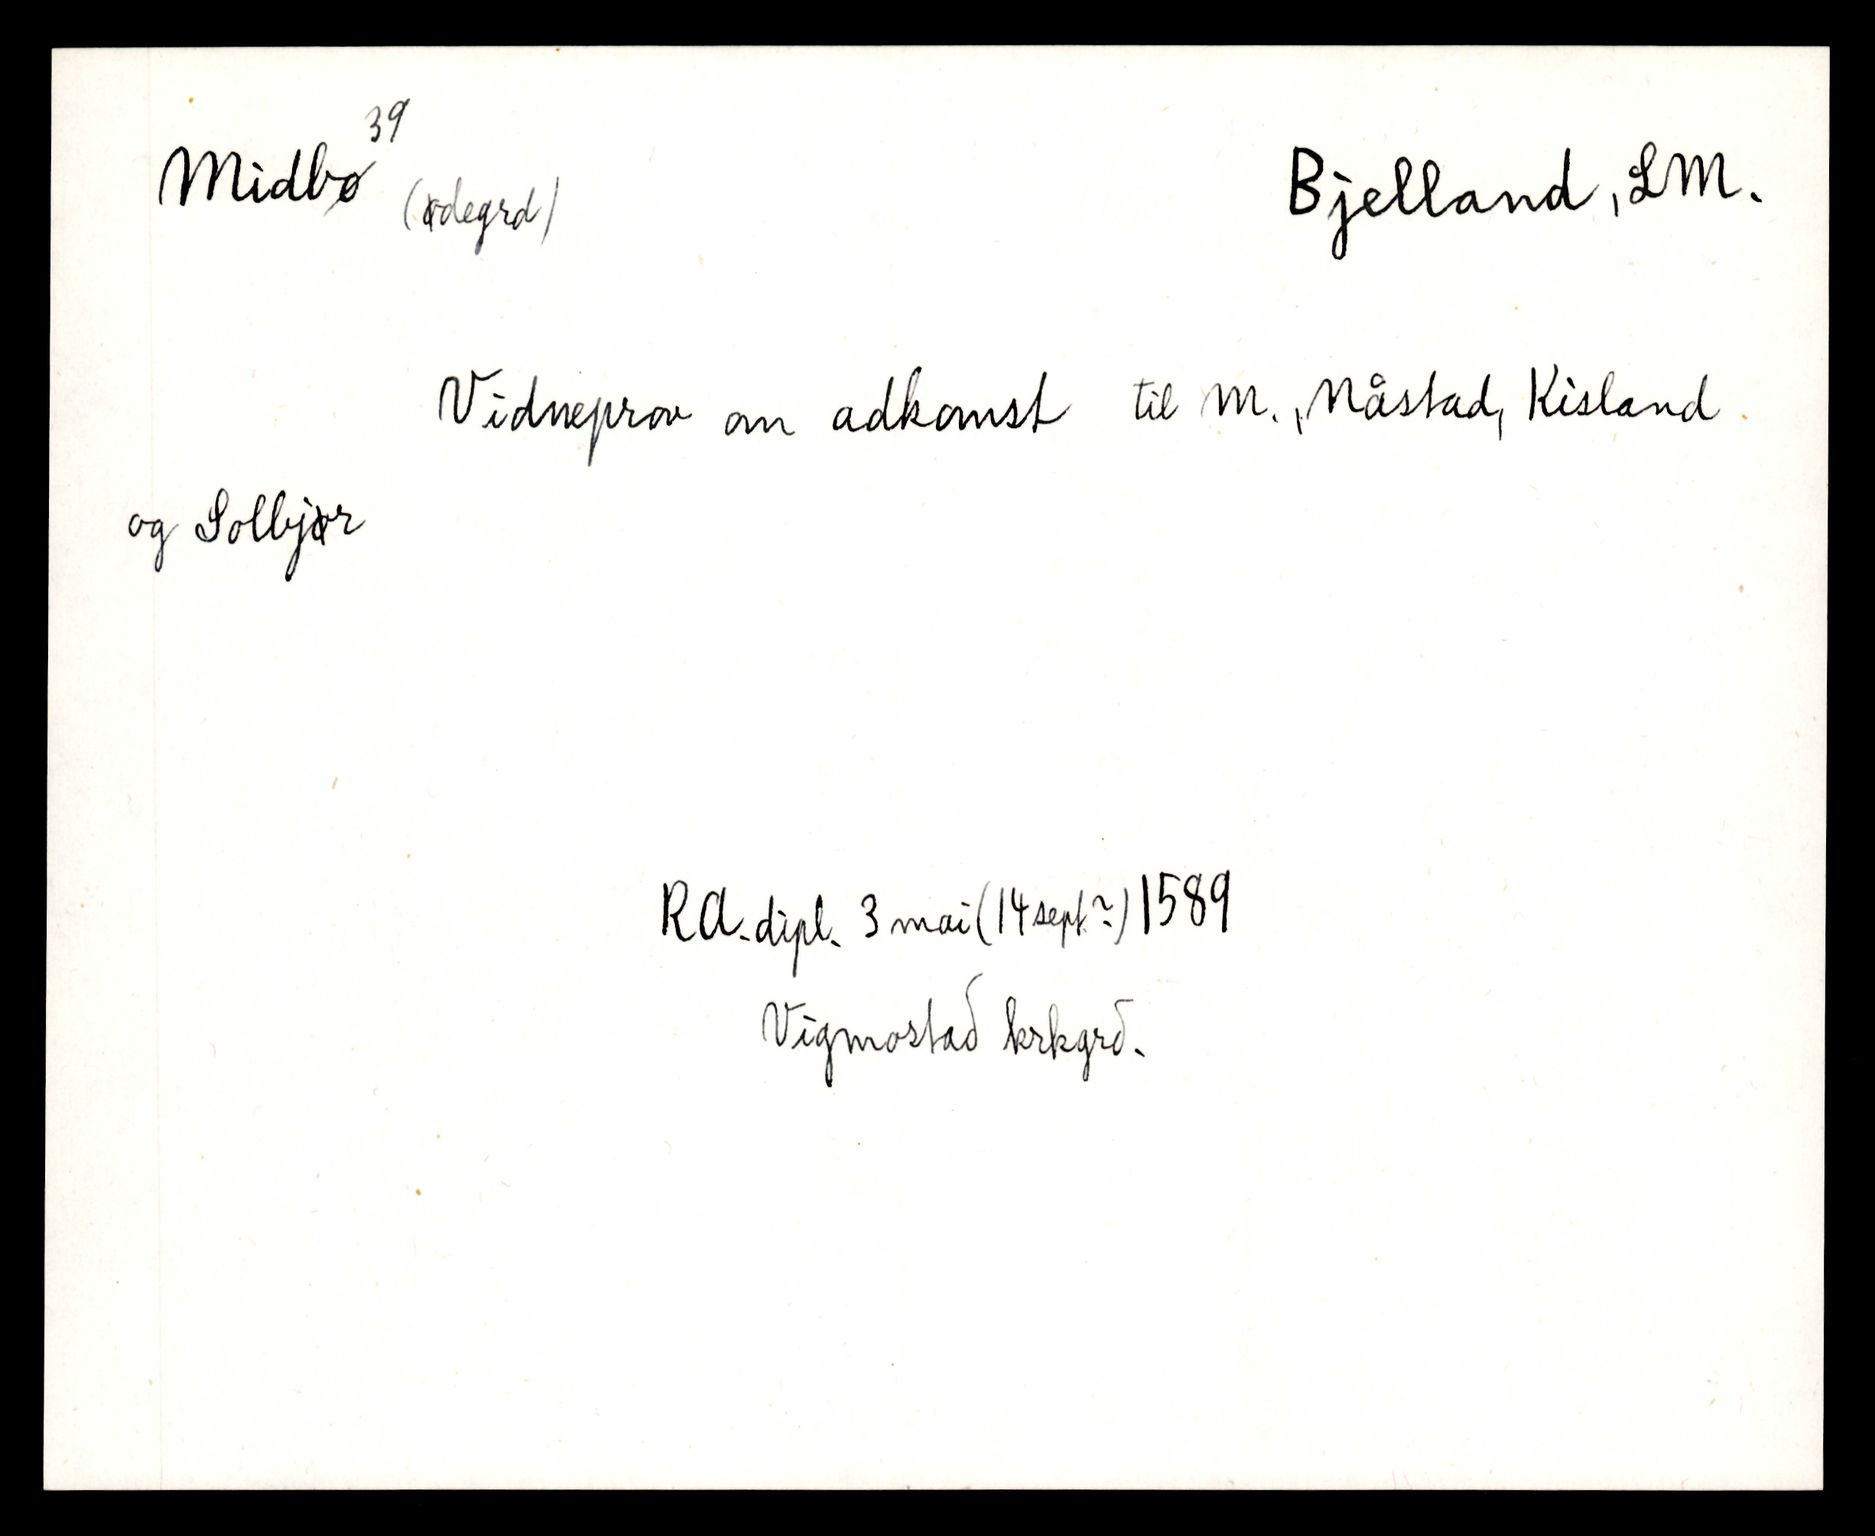 Midbø 39 (ødegrd) Bjelland, LM.
Vidneprov om adkomst til M., Nåstad, Kisland
og Solbjør
RA. dipl. 3 mai (14 sept.?) 1589
Vigmostad krkgrd.